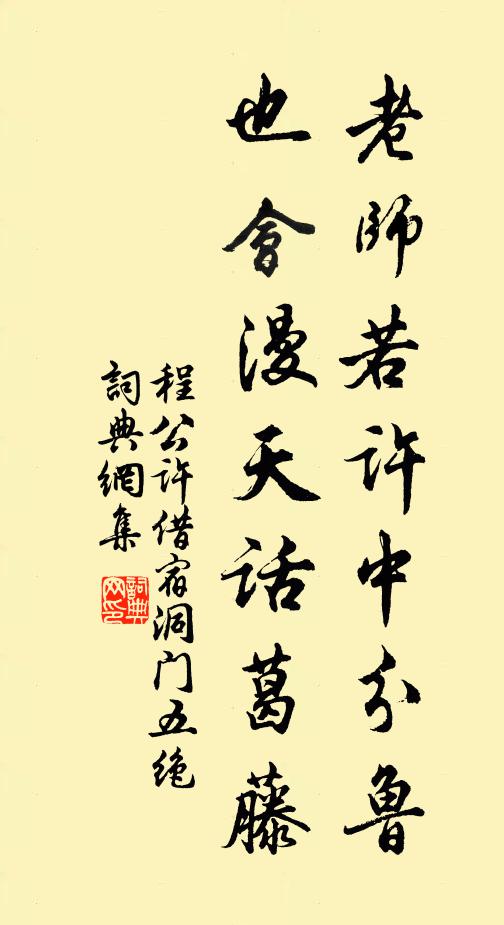 老師若許中分魯
也會漫天話葛藤
程公許借宿洞門五絶
詞典網集
詞典
文印